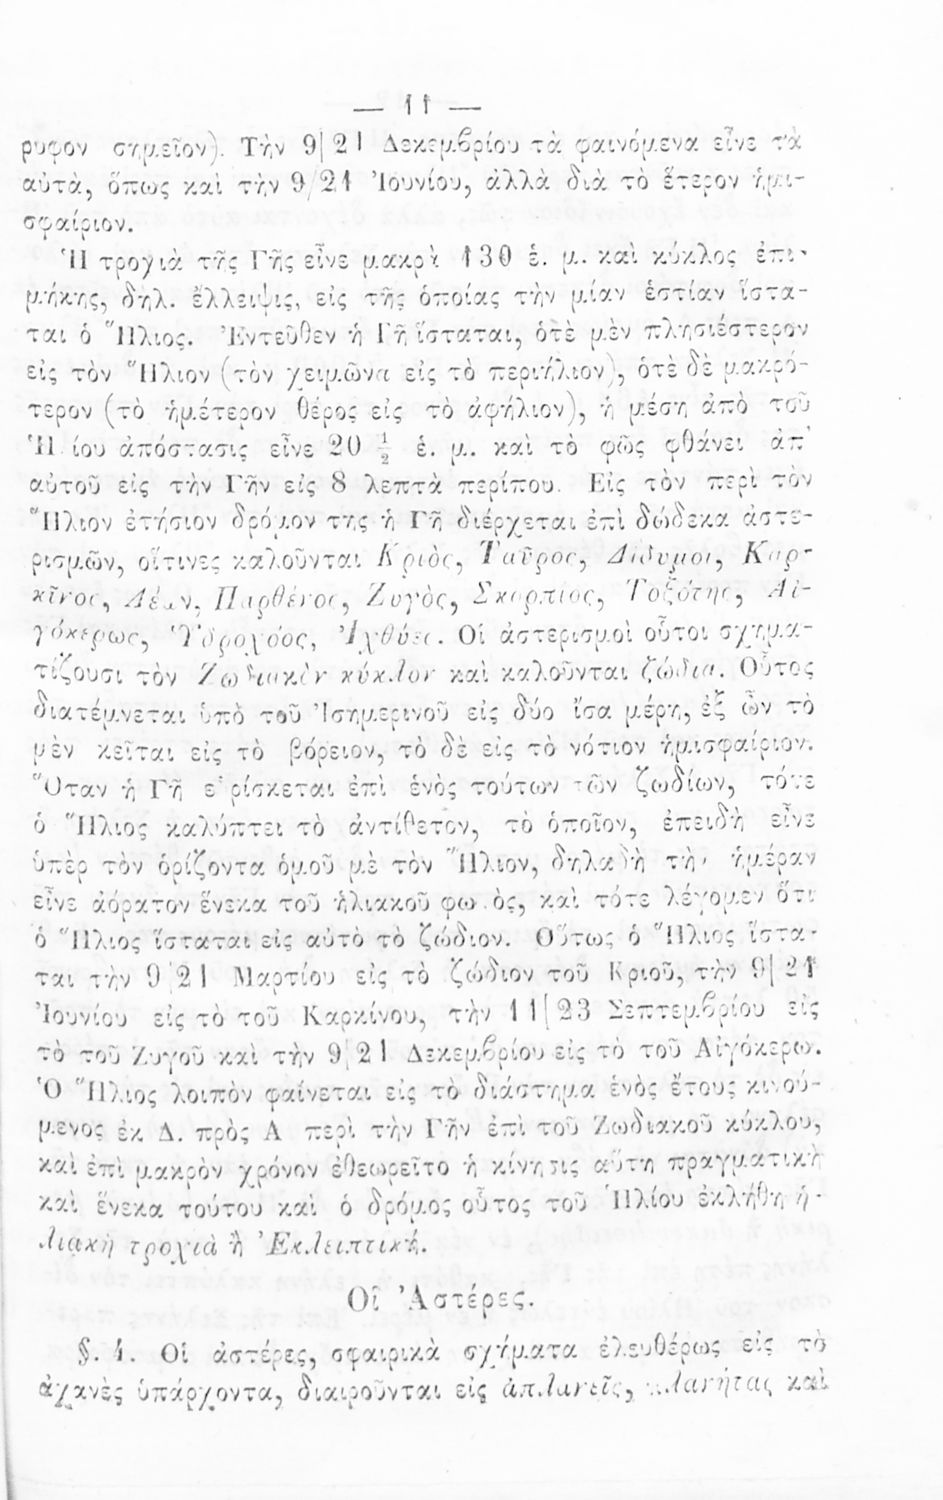 — 11 —
ρυφον σημεῖον). Τὴν 9|21 Δεκεμβρίου τὰ φαινόμενα εἶνε τὰ
αὐτὰ, ὅπως καὶ τὴν 9/21 Ἰουνίου, ἀλλὰ διὰ τὸ ἕτερον ἡμι-
σφαίριον.
Ἡ τροχιὰ τῆς Γῆς εἶνε μακρὰ 130 ἑ. μ. καὶ κύκλος ἐπι-
μήκης, δηλ. ἔλλειψις, εἰς τῆς ὁποίας τὴν μίαν ἑστίαν ἵστα-
ται ὁ Ἥλιος. Ἐντεῦθεν ἡ Γῆ ἵσταται, ὁτὲ μὲν πλησιέστερον
εἰς τὸν Ἥλιον (τὸν χειμῶνα εἰς τὸ περιήλιον), ὁτὲ δὲ μακρό-
τερον (τὸ ἡμέτερον θέρος εἰς τὸ ἀφήλιον), ἡ μέση ἀπὸ τοῦ
Ἡλίου ἀπόστασις εἶνε 20 ½ ἑ. μ. καὶ τὸ φῶς φθάνει ἀπ'
αὐτοῦ εἰς τὴν Γῆν εἰς 8 λεπτὰ περίπου. Εἰς τὸν περὶ τὸν
Ἥλιον ἐτήσιον δρόμον της ἡ Γῆ διέρχεται ἐπὶ δώδεκα ἀστε-
ρισμῶν, οἵτινες καλοῦνται Κριὸς, Ταῦρος, Δίδυμοι, Καρ-
κῖνος, Λέων, Παρθένος, Ζυγὸς, Σκορπίος, Τοξότης, Αἰ-
γόκερως, Ὑδροχόος, Ἰχθύες. Οἱ ἀστερισμοὶ οὗτοι σχημα-
τίζουσι τὸν Ζωδιακὸν κύκλον καὶ καλοῦνται ζώδια. Οὗτος
διατέμνεται ὑπὸ τοῦ Ἰσημερινοῦ εἰς δύο ἴσα μέρη, ἐξ ὧν τὸ
μὲν κεῖται εἰς τὸ βόρειον, τὸ δὲ εἰς τὸ νότιον ἡμισφαίριον.
Ὅταν ἡ Γῆ εὑρίσκεται ἐπὶ ἑνὸς τούτων τῶν ζωδίων, τότε
ὁ Ἥλιος καλύπτει τὸ ἀντίθετον, τὸ ὁποῖον, ἐπειδὴ εἶνε
ὑπὲρ τὸν ὁρίζοντα ὁμοῦ μὲ τὸν Ἥλιον, δηλαδὴ τὴν ἡμέραν
εἶνε ἀόρατον ἕνεκα τοῦ ἡλιακοῦ φωτὸς, καὶ τότε λέγομεν ὅτι
ὁ Ἥλιος ἵσταται εἰς αὐτὸ τὸ ζώδιον. Οὕτως ὁ Ἥλιος ἵστα-
ται τὴν 9|21 Μαρτίου εἰς τὸ ζώδιον τοῦ Κριοῦ, τὴν 9|21
Ἰουνίου εἰς τὸ τοῦ Καρκίνου, τὴν 11|23 Σεπτεμβρίου εἰς
τὸ τοῦ Ζυγοῦ καὶ τὴν 9|21 Δεκεμβρίου εἰς τὸ τοῦ Αἰγόκερω.
Ὁ Ἥλιος λοιπὸν φαίνεται εἰς τὸ διάστημα ἑνὸς ἔτους κινού-
μενος ἐκ Δ. πρὸς Α περὶ τὴν Γῆν ἐπὶ τοῦ Ζωδιακοῦ κύκλου,
καὶ ἐπὶ μακρὸν χρόνον ἐθεωρεῖτο ἡ κίνησις αὕτη πραγματικὴ
καὶ ἕνεκα τούτου καὶ ὁ δρόμος οὗτος τοῦ Ἡλίου ἐκλήθη ἡ-
λιακὴ τροχιὰ ἢ Ἐκλειπτική.
Οἱ Ἀστέρες.
§. 4. Οἱ ἀστέρες, σφαιρικὰ σχήματα ἐλευθέρως εἰς τὸ
ἀχανὲς ὑπάρχοντα, διαιροῦνται εἰς ἀπλανεῖς, πλανήτας καὶ